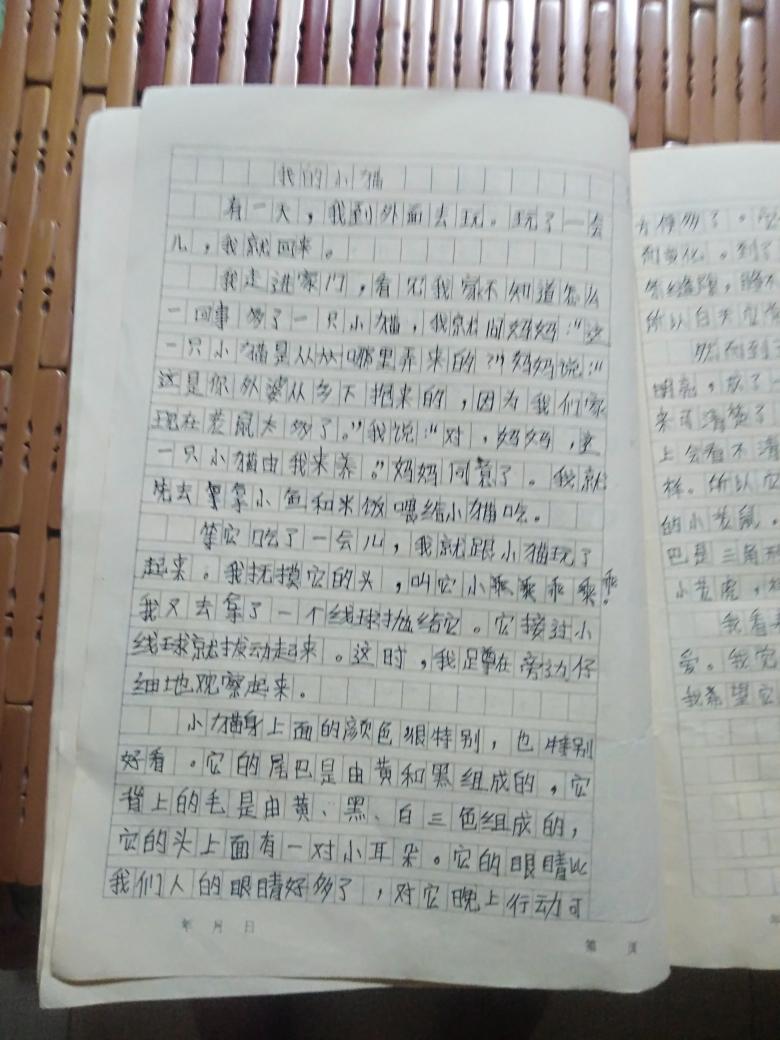 我的小猫
有一天，我到外面去玩。玩了一会
儿，我就回来。
我走进家门，看见我家不知道怎么
一回事多了一只小猫，我就问妈妈："这
一只小猫是从哪里弄来的？"妈妈说："
这是你外婆从乡下抱来的，因为我们家
现在老鼠太多了。"我说："对，妈妈，这
一只小猫由我来养。"妈妈同意了。我就
先去拿小鱼和米饭喂给小猫吃。
等它吃了一会儿，我就跟小猫玩了
起来。我抚摸它的头，叫它小乖乖乖乖！
我又去拿了一个线球抛给它。它接过小
线球就拨动起来。这时，我蹲在旁边仔
细地观察起来。
小猫身上面的颜色狠特别，也特别
好看。它的尾巴是由黄和黑组成的，它
背上的毛是由黄、黑、白三色组成的，
它的头上面有一对小耳朵。它的眼睛比
我们人的眼睛好多了，对它晚上行动可
年 月 日
第 页
方便多了。
而变化。到了
所以白天它
然而到了
明亮，放了一
来可清楚了
上会看不清
样。所以它
的小老鼠，
巴是三角形
小老虎，
我看着
爱。我
我希望它